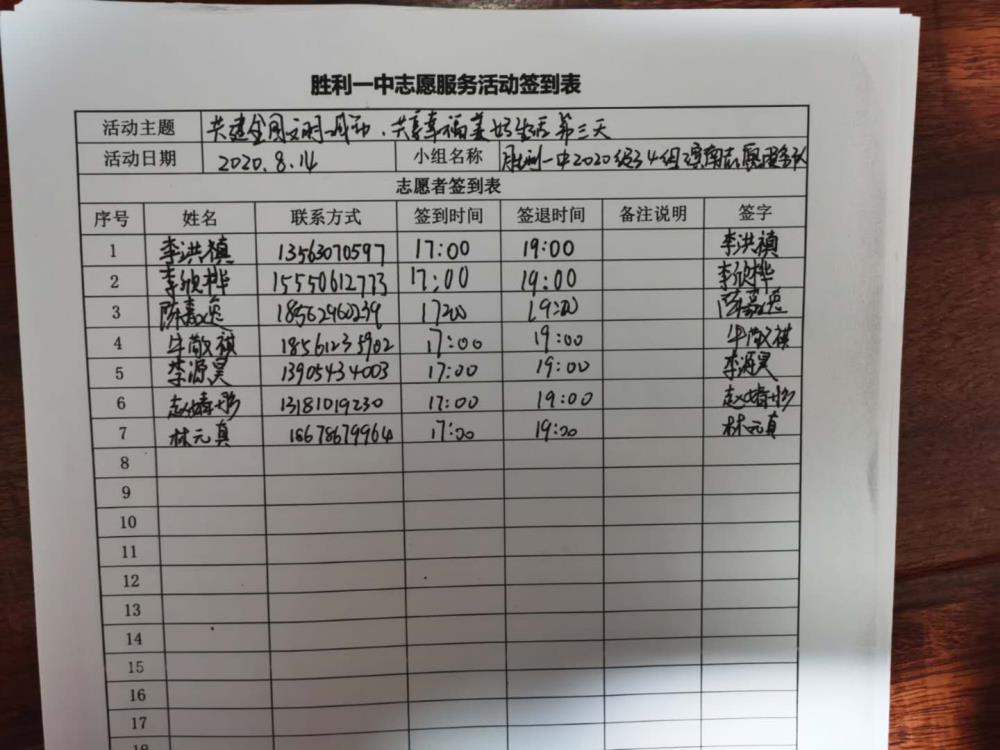 胜利一中志愿服务活动签到表
活动主题 共建全国文明城市、共享幸福美好生活 第三天
活动日期 2020.8.14 小组名称 胜利一中2020级34组 志愿服务队
志愿者签到表
序号 姓名 联系方式 签到时间 签退时间 备注说明 签字
1 李洪禛 13563070597 17:00 19:00 李洪禛
2 李欣桦 15550612773 17:00 19:00 李欣桦
3 陈嘉逸 18562960239 17:00 19:00 陈嘉逸
4 牛敬祺 18561235902 17:00 19:00 牛敬祺
5 李源昊 13905434003 17:00 19:00 李源昊
6 赵婧彤 13181019230 17:00 19:00 赵婧彤
7 林元真 18678679964 17:00 19:00 林元真
8
9
10
11
12
13
14
15
16
17
18